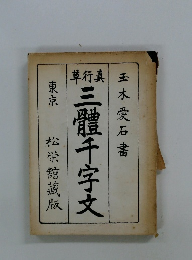 玉木愛石書
真行草
三體千字文
東京 松榮館藏版